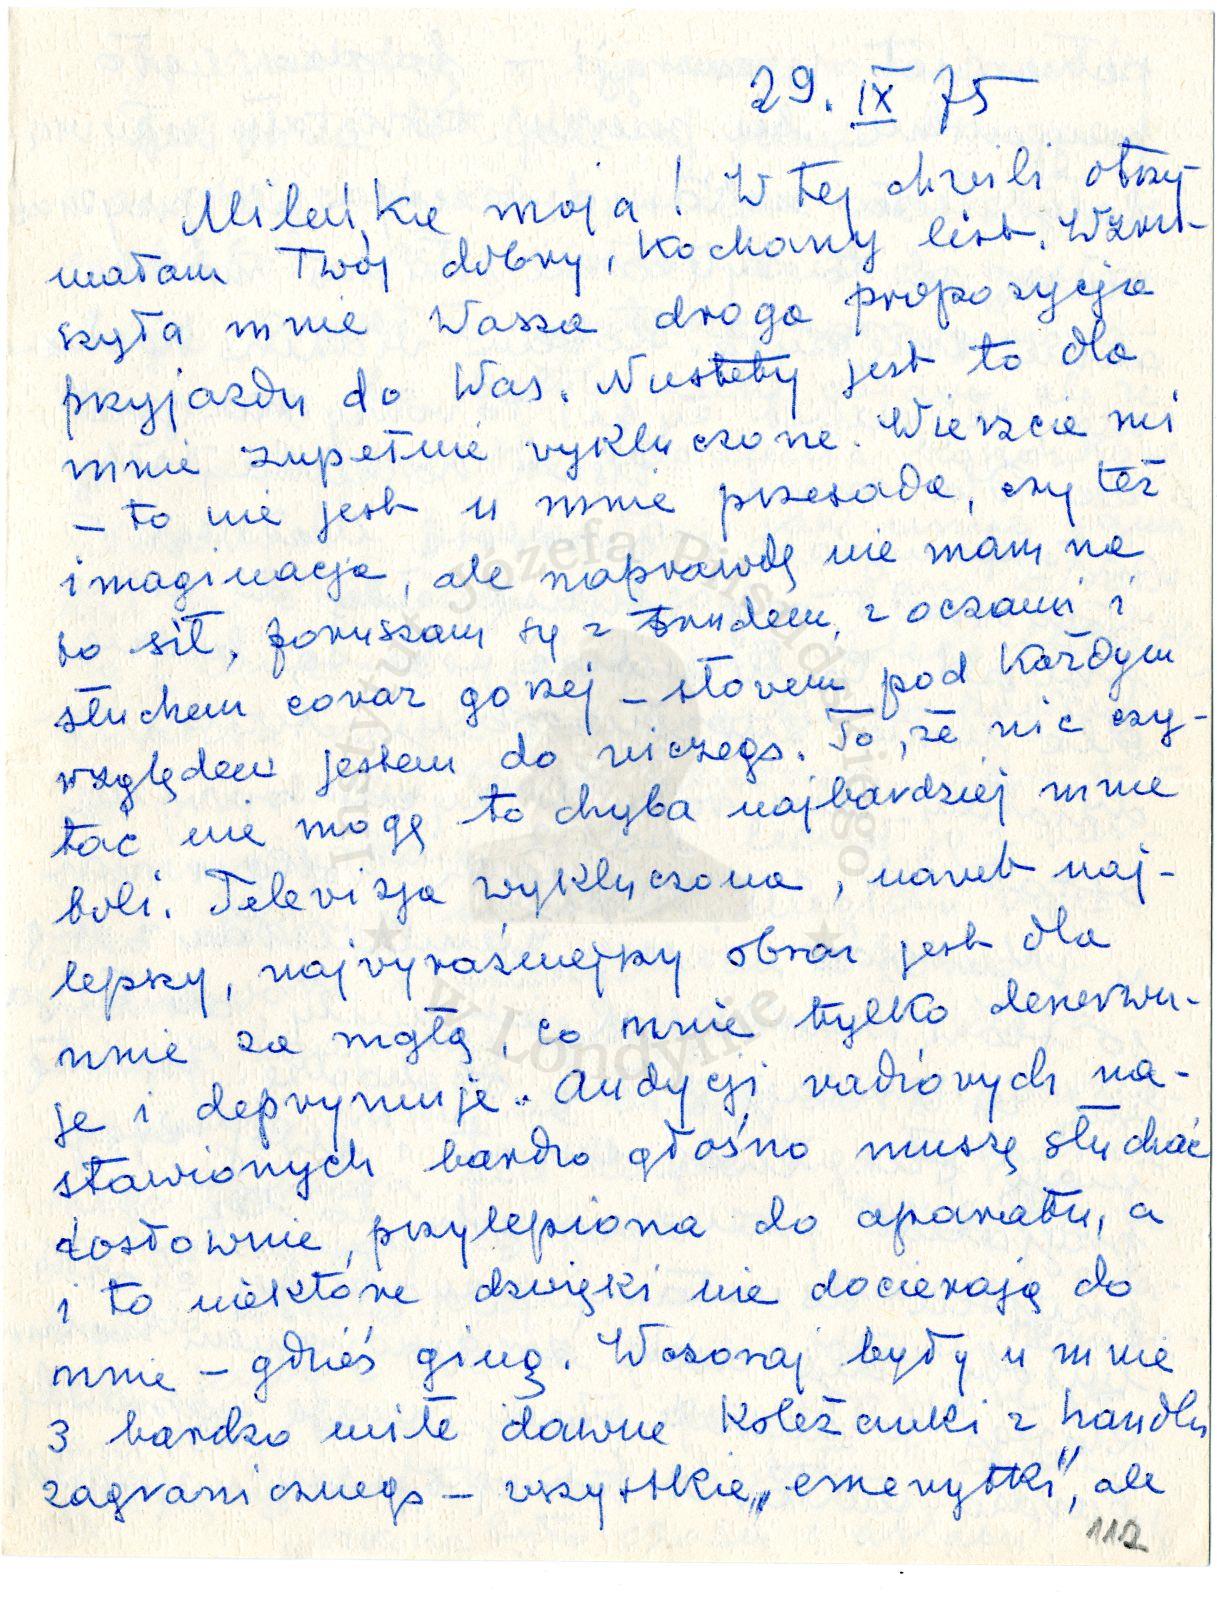 29. IX 75
Mileńkie moja! W tej chwili otrzy-
małam Twój dobry, kochany list. Wzru-
szyła mnie Wasza droga propozycja
przyjazdu do Was. Niestety jest to dla
mnie zupełnie wykluczone. Wierzcie mi
– to nie jest u mnie przesada, czy też
imaginacja, ale naprawdę nie mam na
to sił, poruszam się z trudem, z oczami i
słuchem coraz gorzej – słowem pod każdym
względem jestem do niczego. To, że nic czy-
tać nie mogę to chyba najbardziej mnie
boli. Telewizja wykluczona, nawet naj-
lepszy, najwyraźniejszy obraz jest dla
mnie za mgłą, co mnie tylko denerwu-
je i deprymuje. Audycji radiowych na-
stawionych bardzo głośno muszę słuchać
dosłownie, przylepiona do aparatu, a
i to niektóre dzwięki nie docierają do
mnie – gdzieś giną. Wczoraj były u mnie
3 bardzo miłe dawne koleżanki z handlu
zagranicznego – wszystkie „emerytki", ale
112
Instytut Józefa Piłsudskiego
w Londynie